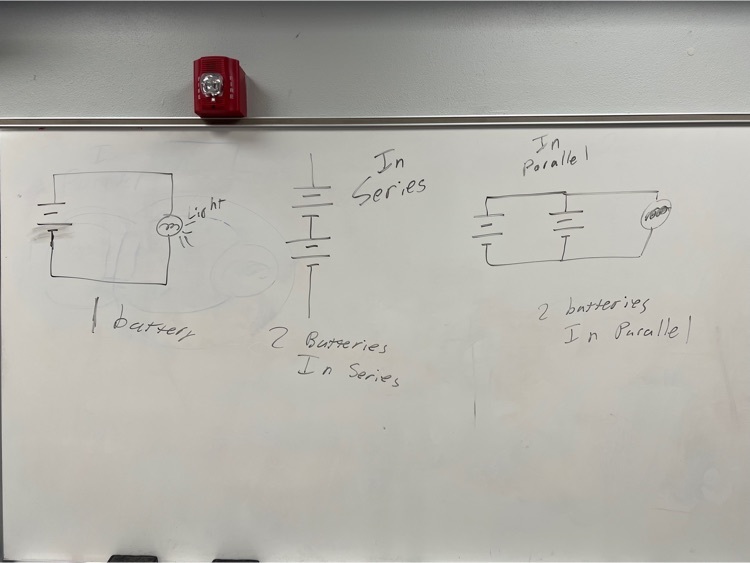 Light
1 battery
In
Series
2 Batteries
In Series
In
Parallel
2 batteries
In Parallel